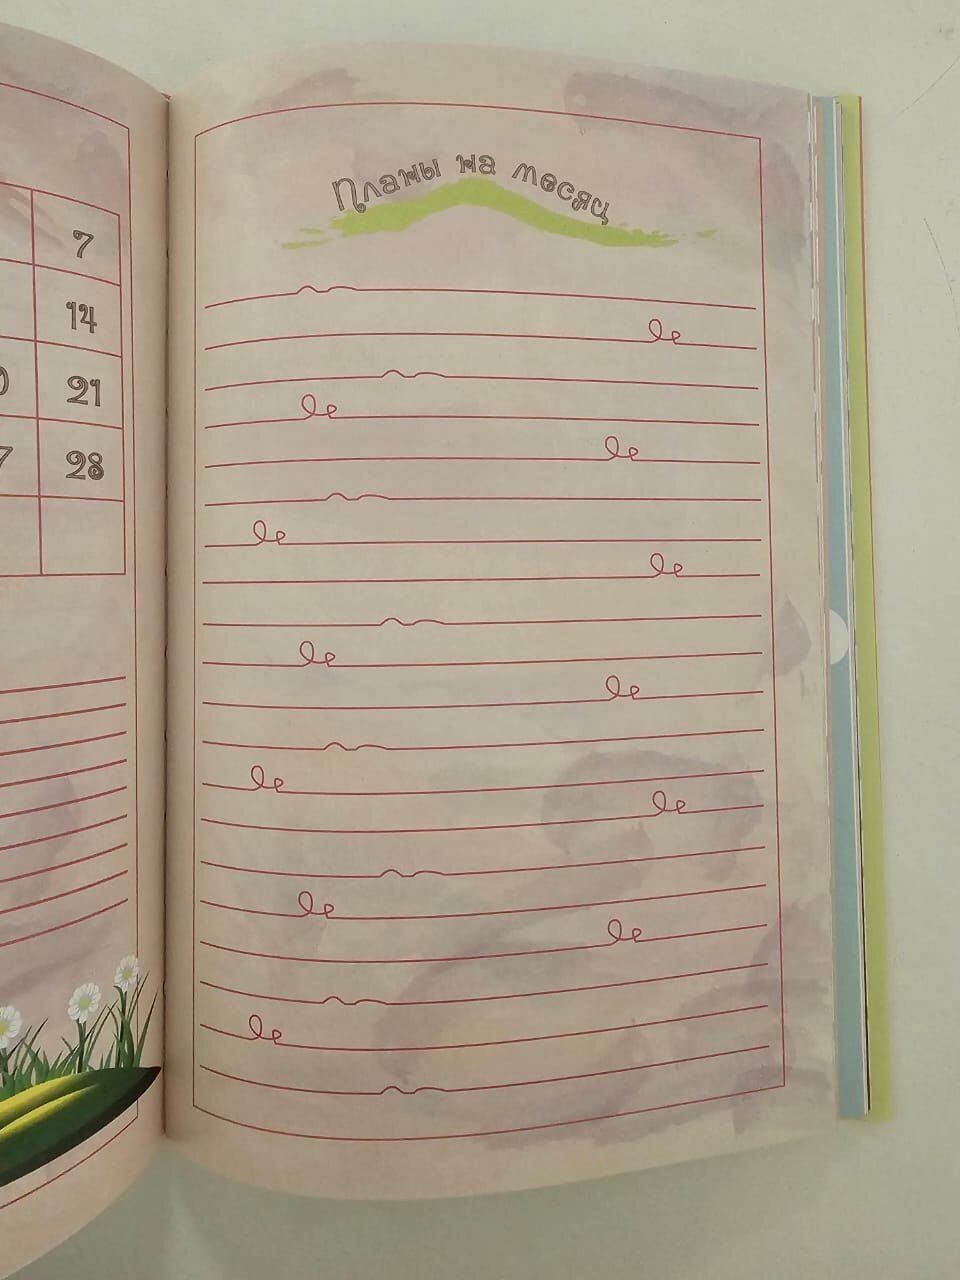 7
14
21
28
Планы на месяц